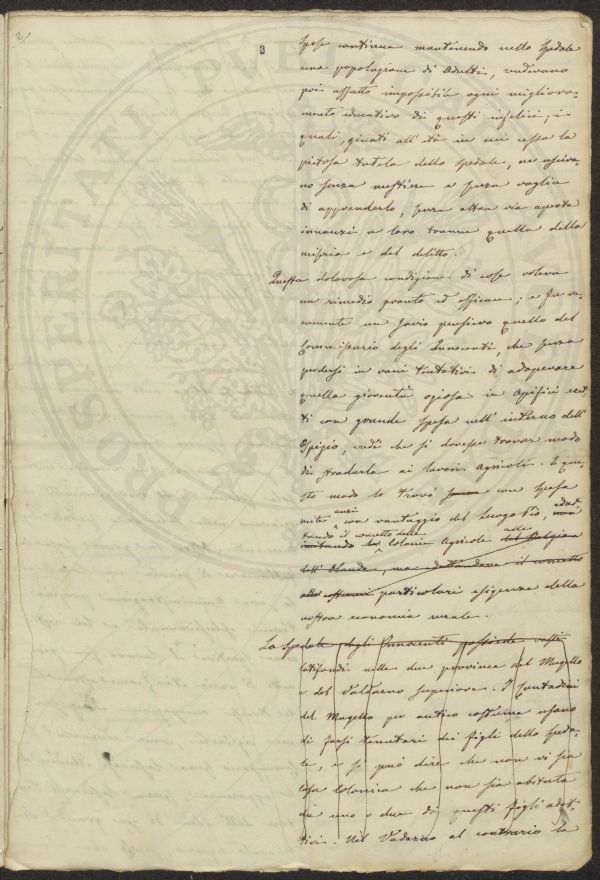 21
3
spese continue mantenendo nello Spedale
una popolazione di Adulti, rendevano
poi affatto impossibile ogni migliora-
mento educativo di questi infelici, i
quali, giunti all'età in cui cessa la
pietosa tutela dello Spedale, ne usciva-
no senza mestiere e senza voglia
di apprenderlo, senz altra via aperta
innanzi a loro tranne quella della
miseria e del delitto.
Questa dolorosa condizione di cose voleva
un rimedio pronto ed efficace; e fu ve-
ramente un savio pensiero quello del
Commissario degli Innocenti, che senza
perdersi in vani tentativi di adoperare
quella gioventù oziosa in opifici eret-
ti con grande spesa nell' interno dell'
Ospizio, vide che si dovesse trovar modo
di stradarla ai lavori Agricoli. E que-
sto modo lo trovò con spesa
mite anzi con vantaggio del luogo Pio, adat-
tando il concetto delle
imitando le Colonie Agricole del Belgio e alle
dell' Olanda, ma adattandone il concetto
alle particolari esigenze della
nostra economia rurale.
Lo Spedale degli Innocenti possiede vasti
latifondi nelle due province del Mugello
e del Valdarno Superiore. I Contadini
del Mugello per antico costume usano
di farsi tenutari dei figli dello Speda-
le, e si può dire che non vi sia
casa Colonica che non sia abitata
da uno o due di questi figli adot-
tivi. Nel Vadarno al contrario la
PROSPERITATI PVB